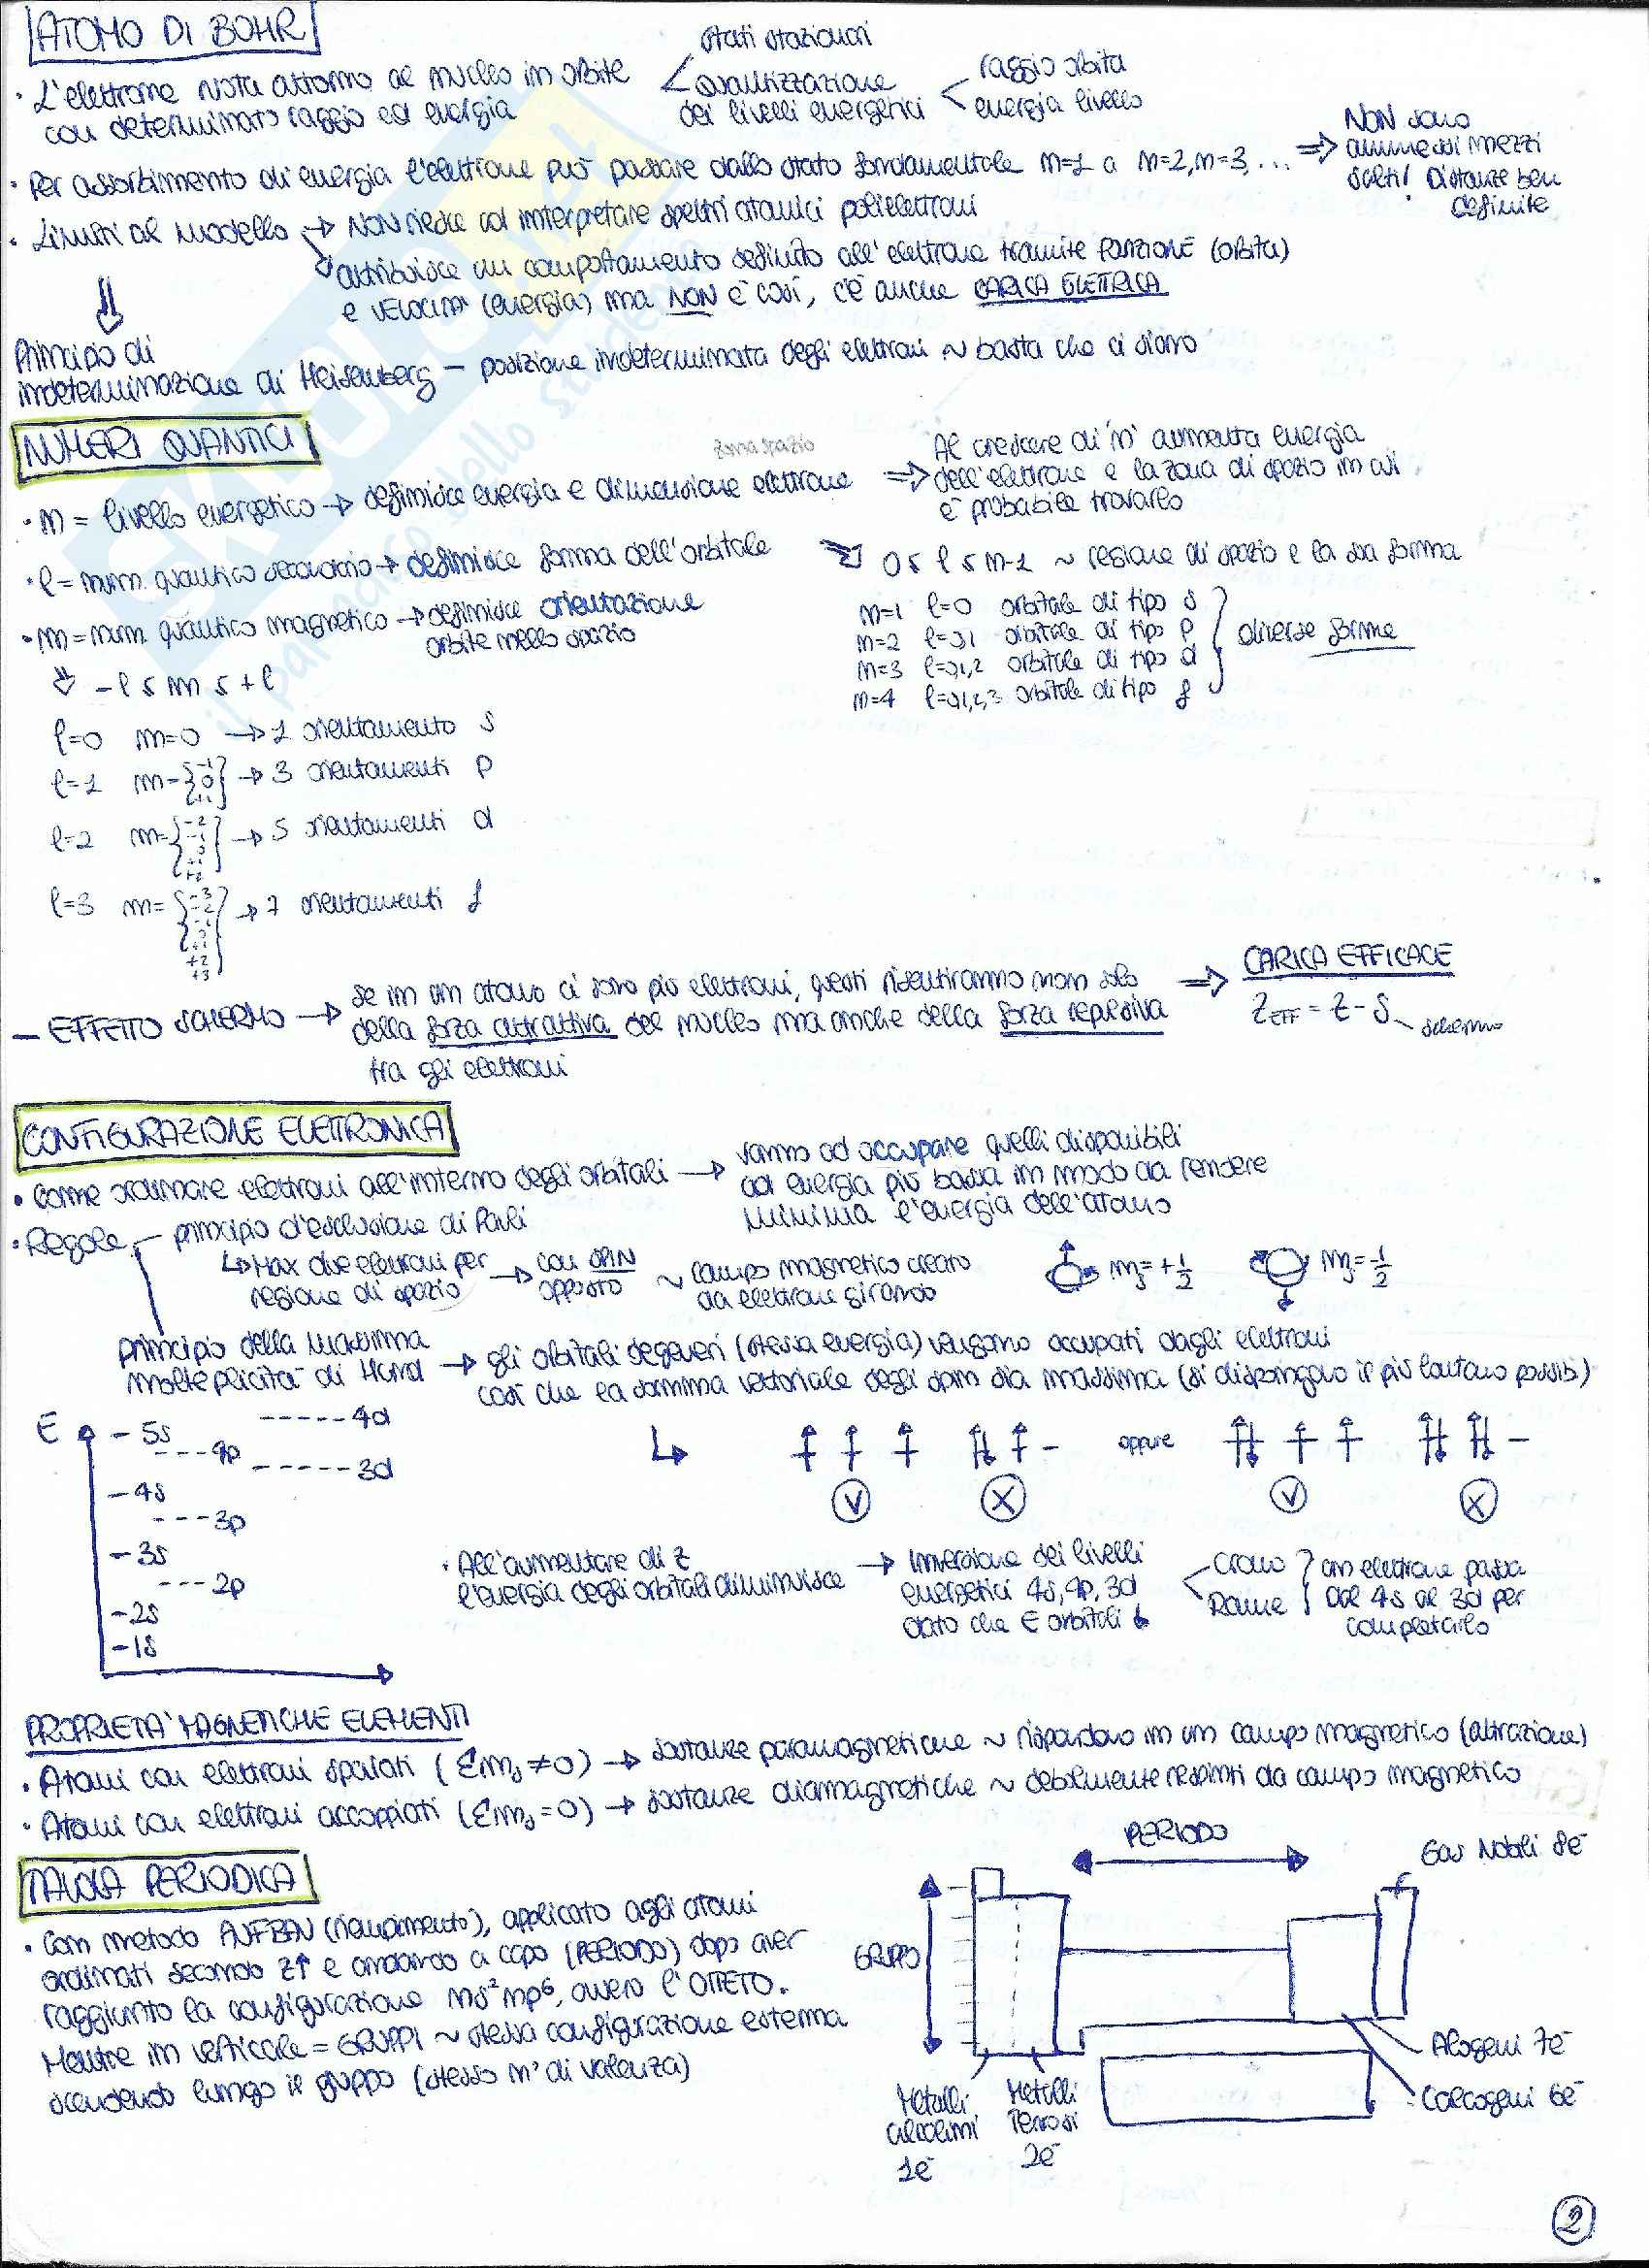 ATOMO DI BOHR
· L'elettrone ruota attorno al nucleo in orbite
con determinato raggio ed energia
stati stazionari
quantizzazione
dei livelli energetici
raggio orbita
energia livello
· Per assorbimento di energia l'elettrone può passare dallo stato fondamentale n=1 a n=2, n=3, ...
⇒ NON sono
ammessi mezzi
salti! Distanze ben
definite
· Limiti al modello → NON riesce ad interpretare spettri atomici polielettroni
attribuisce un comportamento definito all'elettrone tramite POSIZIONE (orbita)
e VELOCITÀ (energia) ma NON è così, c'è anche CARICA ELETTRICA
Principio di
indeterminazione di Heisenberg – posizione indeterminata degli elettroni ~ basta che ci siano
NUMERI QUANTICI
zona spazio
· n = livello energetico → definisce energia e dimensione elettrone
⇒ Al crescere di 'n' aumenta energia
dell'elettrone e la zona di spazio in cui
è probabile trovarlo
· l = num. quantico secondario → definisce forma dell'orbitale
0 ≤ l ≤ n-1 ~ regione di spazio e la sua forma
· m = num. quantico magnetico → definisce orientazione
orbite nello spazio
n=1 l=0 orbitale di tipo s
n=2 l=0,1 orbitale di tipo p
n=3 l=0,1,2 orbitale di tipo d
n=4 l=0,1,2,3 orbitale di tipo f
diverse forme
-l ≤ m ≤ +l
l=0 m=0 → 1 orientamento s
l=1 m={-1 0 +1} → 3 orientamenti p
l=2 m={-2 -1 0 +1 +2} → 5 orientamenti d
l=3 m={-3 -2 -1 0 +1 +2 +3} → 7 orientamenti f
– EFFETTO SCHERMO → se in un atomo ci sono più elettroni, questi risentiranno non solo
della forza attrattiva del nucleo ma anche della forza repulsiva
tra gli elettroni
⇒ CARICA EFFICACE
Z EFF = Z - S
schermo
CONFIGURAZIONE ELETTRONICA
· Come ordinare elettroni all'interno degli orbitali → vanno ad occupare quelli disponibili
ad energia più bassa in modo da rendere
minima l'energia dell'atomo
· Regole – principio d'esclusione di Pauli
↳ Max due elettroni per
regione di spazio
→ con SPIN
opposto
~ campo magnetico creato
da elettrone girando
ms = +1/2
ms = -1/2
principio della massima
molteplicità di Hund
→ gli orbitali degeneri (stessa energia) vengono occupati dagli elettroni
così che la somma vettoriale degli spin sia massima (si dispongono il più lontano possib)
oppure
V
X
V
X
E
- 5s
----- 4d
--- 4p
----- 3d
- 4s
--- 3p
- 3s
--- 2p
- 2s
- 1s
· All'aumentare di Z
l'energia degli orbitali diminuisce
→ Inversione dei livelli
energetici 4s, 4p, 3d
dato che E orbitali ↓
Cromo
Rame
un elettrone passa
dal 4s al 3d per
completarlo
PROPRIETÀ MAGNETICHE ELEMENTI
· Atomi con elettroni spaiati (Σms ≠ 0) → sostanze paramagnetiche ~ rispondono in un campo magnetico (attrazione)
· Atomi con elettroni accoppiati (Σms = 0) → sostanze diamagnetiche ~ debolmente respinti da campo magnetico
TAVOLA PERIODICA
· Con metodo AUFBAU (riempimento), applicato agli atomi
ordinati secondo Z↑ e andando a capo (PERIODO) dopo aver
raggiunto la configurazione ns²np⁶, ovvero l'OTTETO.
Mentre in verticale = GRUPPI ~ stessa configurazione esterna
scendendo lungo il gruppo (stesso n° di valenza)
PERIODO
GRUPPO
Gas Nobili 8e⁻
Alogeni 7e⁻
Calcogeni 6e⁻
Metalli
alcalini
1e⁻
Metalli
Terrosi
2e⁻
2